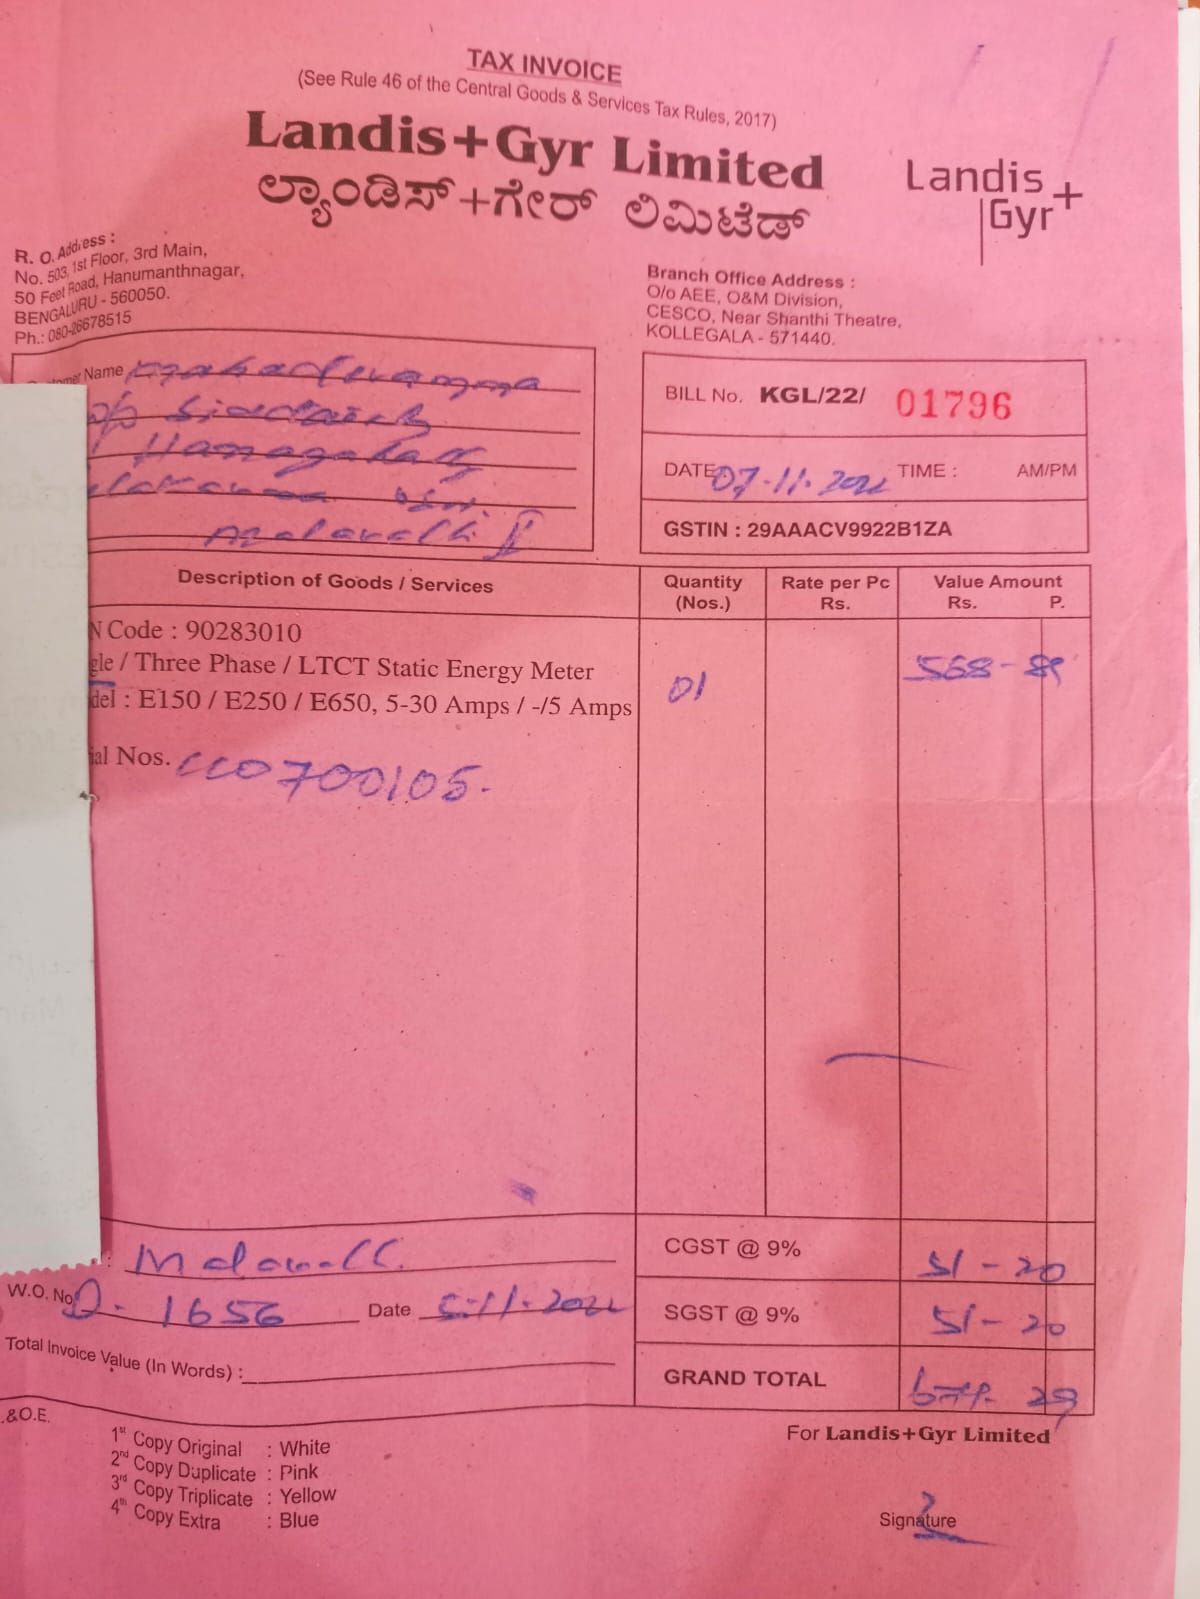 TAX INVOICE
(See Rule 46 of the Central Goods & Services Tax Rules, 2017)
Landis+Gyr Limited
ಲ್ಯಾಂಡಿಸ್+ಗೇರ್ ಲಿಮಿಟೆಡ್
Landis
Gyr+
R. O. Address :
No. 503, 1st Floor, 3rd Main,
50 Feet Road, Hanumanthnagar,
BENGALURU - 560050.
Ph.: 080-26678515
Branch Office Address :
O/o AEE, O&M Division,
CESCO, Near Shanthi Theatre,
KOLLEGALA - 571440.
Name
BILL No. KGL/22/ 01796
DATE 07-11-2022 TIME : AM/PM
GSTIN : 29AAACV9922B1ZA
Description of Goods / Services Quantity (Nos.) Rate per Pc Rs. Value Amount Rs. P.
N Code : 90283010
gle / Three Phase / LTCT Static Energy Meter 01 568-89
del : E150 / E250 / E650, 5-30 Amps / -/5 Amps
ial Nos. CC0700105.
CGST @ 9% 51-20
W.O. No. 1656 Date 5-11-2022
SGST @ 9% 51-20
Total Invoice Value (In Words) :
GRAND TOTAL 29
.&O.E.
For Landis+Gyr Limited
1st Copy Original : White
2nd Copy Duplicate : Pink
3rd Copy Triplicate : Yellow
4th Copy Extra : Blue
Signature